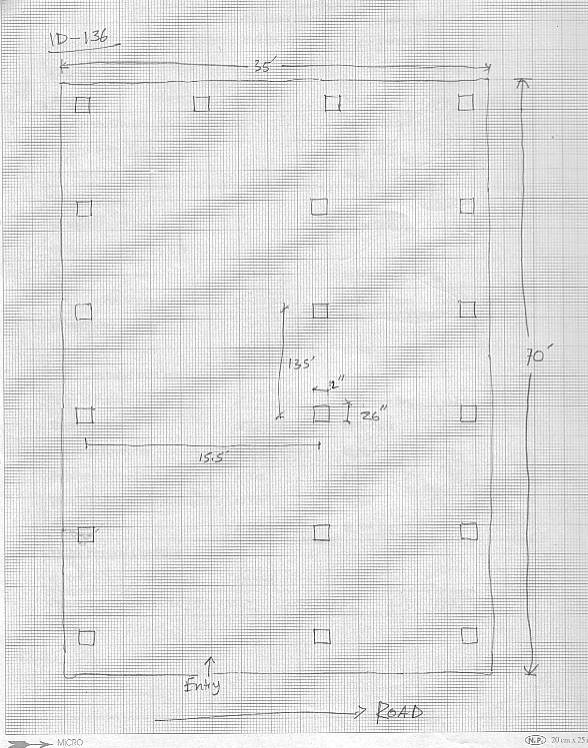 ID-136
35'
13.5'
12"
26"
70'
15.5'
Entry
ROAD
MICRO
N.P. 20 cm x 25